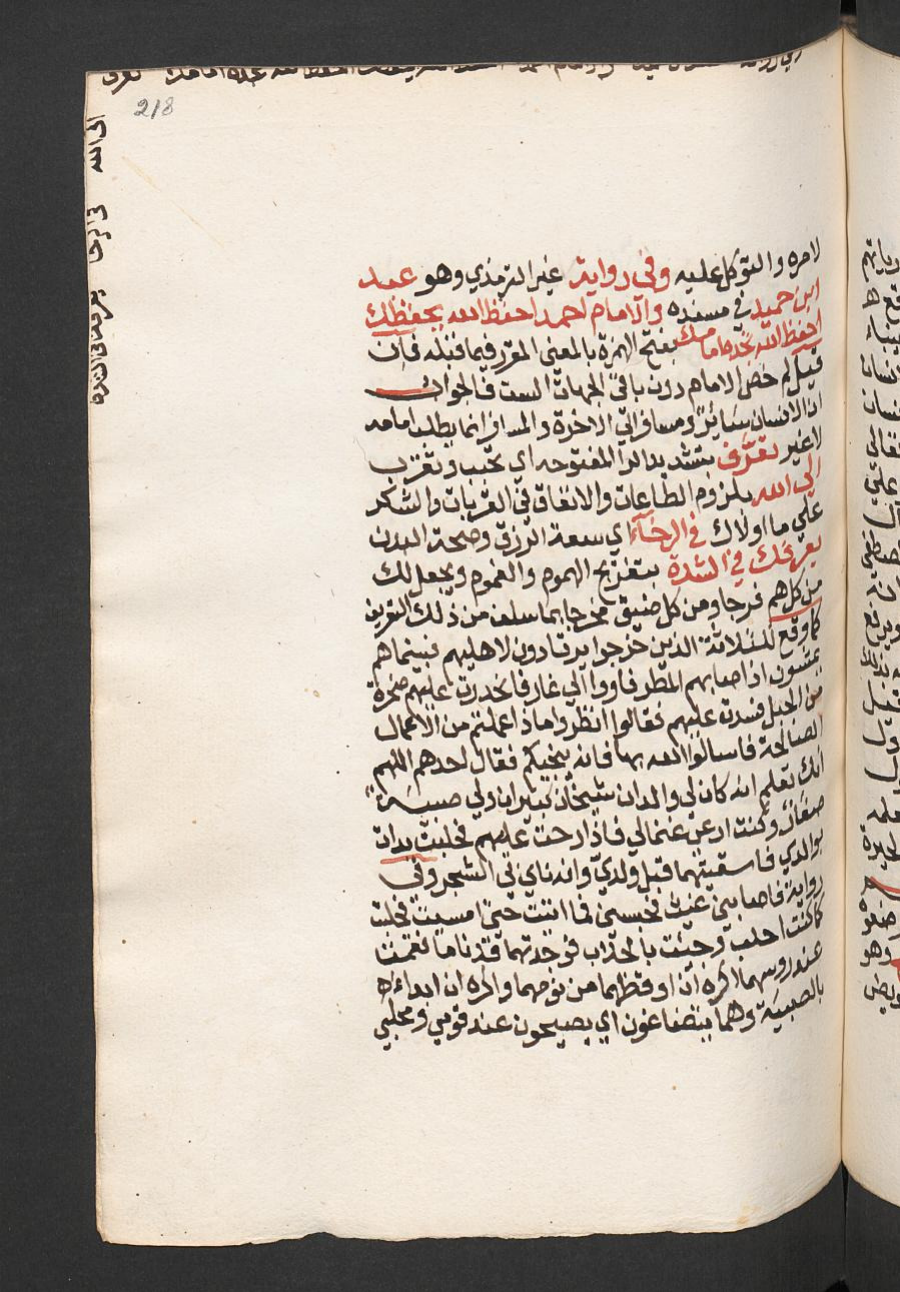 218
لامره والتوكل عليه وفي رواية غير الترمذي وهو عبد
ابن حميد في مسنده والامام احمد احفظ الله يحفظك
احفظ الله تجده امامك بفتح الهمزة بالمعنى المقرر فيما قبله فان
قيل لم خص الامام دون باقي الجهات الست فالجواب
ان الانسان سائر ومسافر الي الاخرة والمسافر انما يطلب امامه
لا غير تعرف بتشديد الرا المفتوحه اي تحبب وتقرب
الي الله بلزوم الطاعات والانفاق في القربات والشكر
علي ما اولاك في الرخآء اي سعة الرزق وصحة البدن
يعرفك في الشدة بتفريج الهموم والغموم ويجعل لك
من كل هم فرجا ومن كل ضيق مخرجا بما سلف من ذلك التعرف
كما وقع للثلاثة الذين خرجوا يرتادون لاهليهم فبينما هم
يمشون اذ اصابهم المطر فاووا الي غار فانحدرت عليهم صخرة
من الجبل فسدت عليهم فقالوا انظروا ماذا عملتم من الاعمال
الصالحة فاسالوا الله بها فانه ينجيكم فقال احدهم اللهم
انك تعلم انه كان لي والدان شيخان كبيران ولي صبية
صغار وكنت ارعى غنما لي فاذا رحت عليهم فحلبت بدات
بوالدي فاسقيتهما قبل ولدي وانه ناي بي الشجر وفي
رواية فاصابني غيث فحبسني فما اتيت حتى امسيت فحلبت
كما كنت احلب وجئت بالحلاب فوجدتهما قد ناما فقمت
عند روسهما اكره ان اوقظهما من نومهما واكره ان ابداء
بالصبية وهما يتضاغون اي يصيحون عند قدمي ومحلبي
الى الله في الرخا يعرفك في الشدة